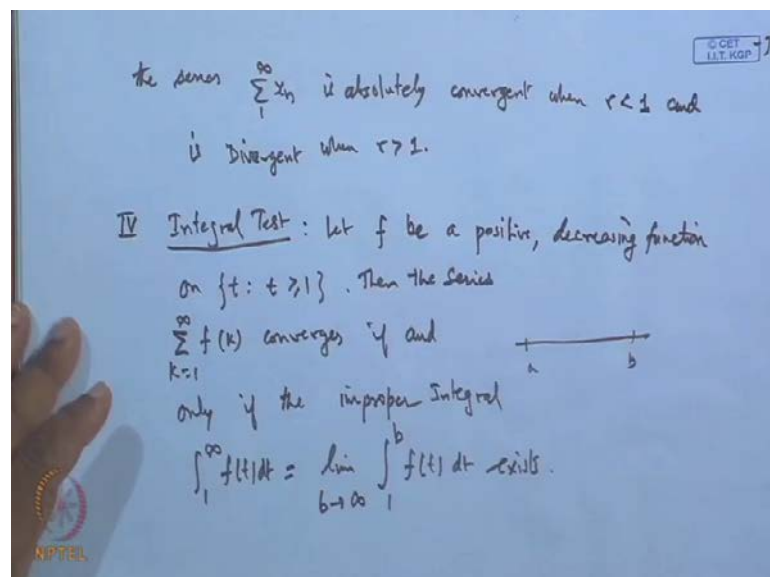 © CET
I.I.T. KGP
the series ∑_{1}^{∞} x_n is absolutely convergent when r < 1 and
is Divergent when r > 1.
IV Integral Test : Let f be a positive, decreasing function
on {t : t ≥ 1} . Then the series
∑_{k=1}^{∞} f(k) converges if and
a b
only if the improper Integral
∫_{1}^{∞} f(t) dt = lim_{b→∞} ∫_{1}^{b} f(t) dt exists.
NPTEL